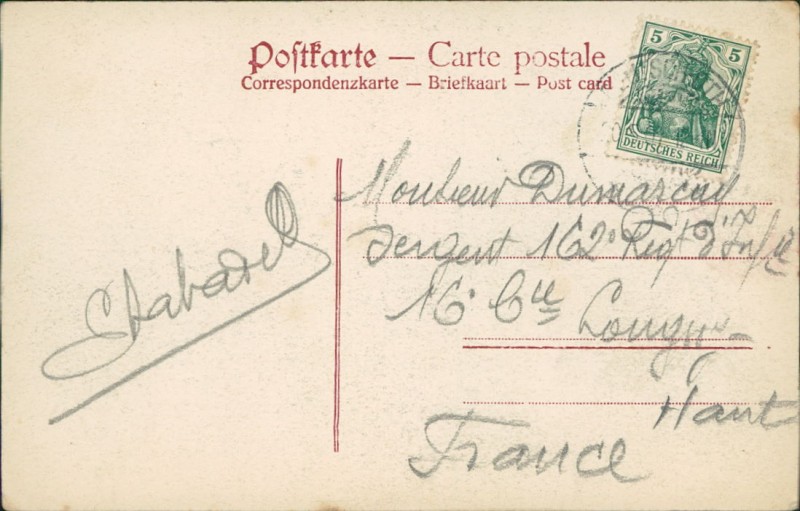 Postkarte — Carte postale
Correspondenzkarte — Briefkaart — Post card
5 5
DEUTSCHES REICH
Monsieur Dumarcay
Sergent 162e Regt d'Inf ie
16e Cie
Hant
France